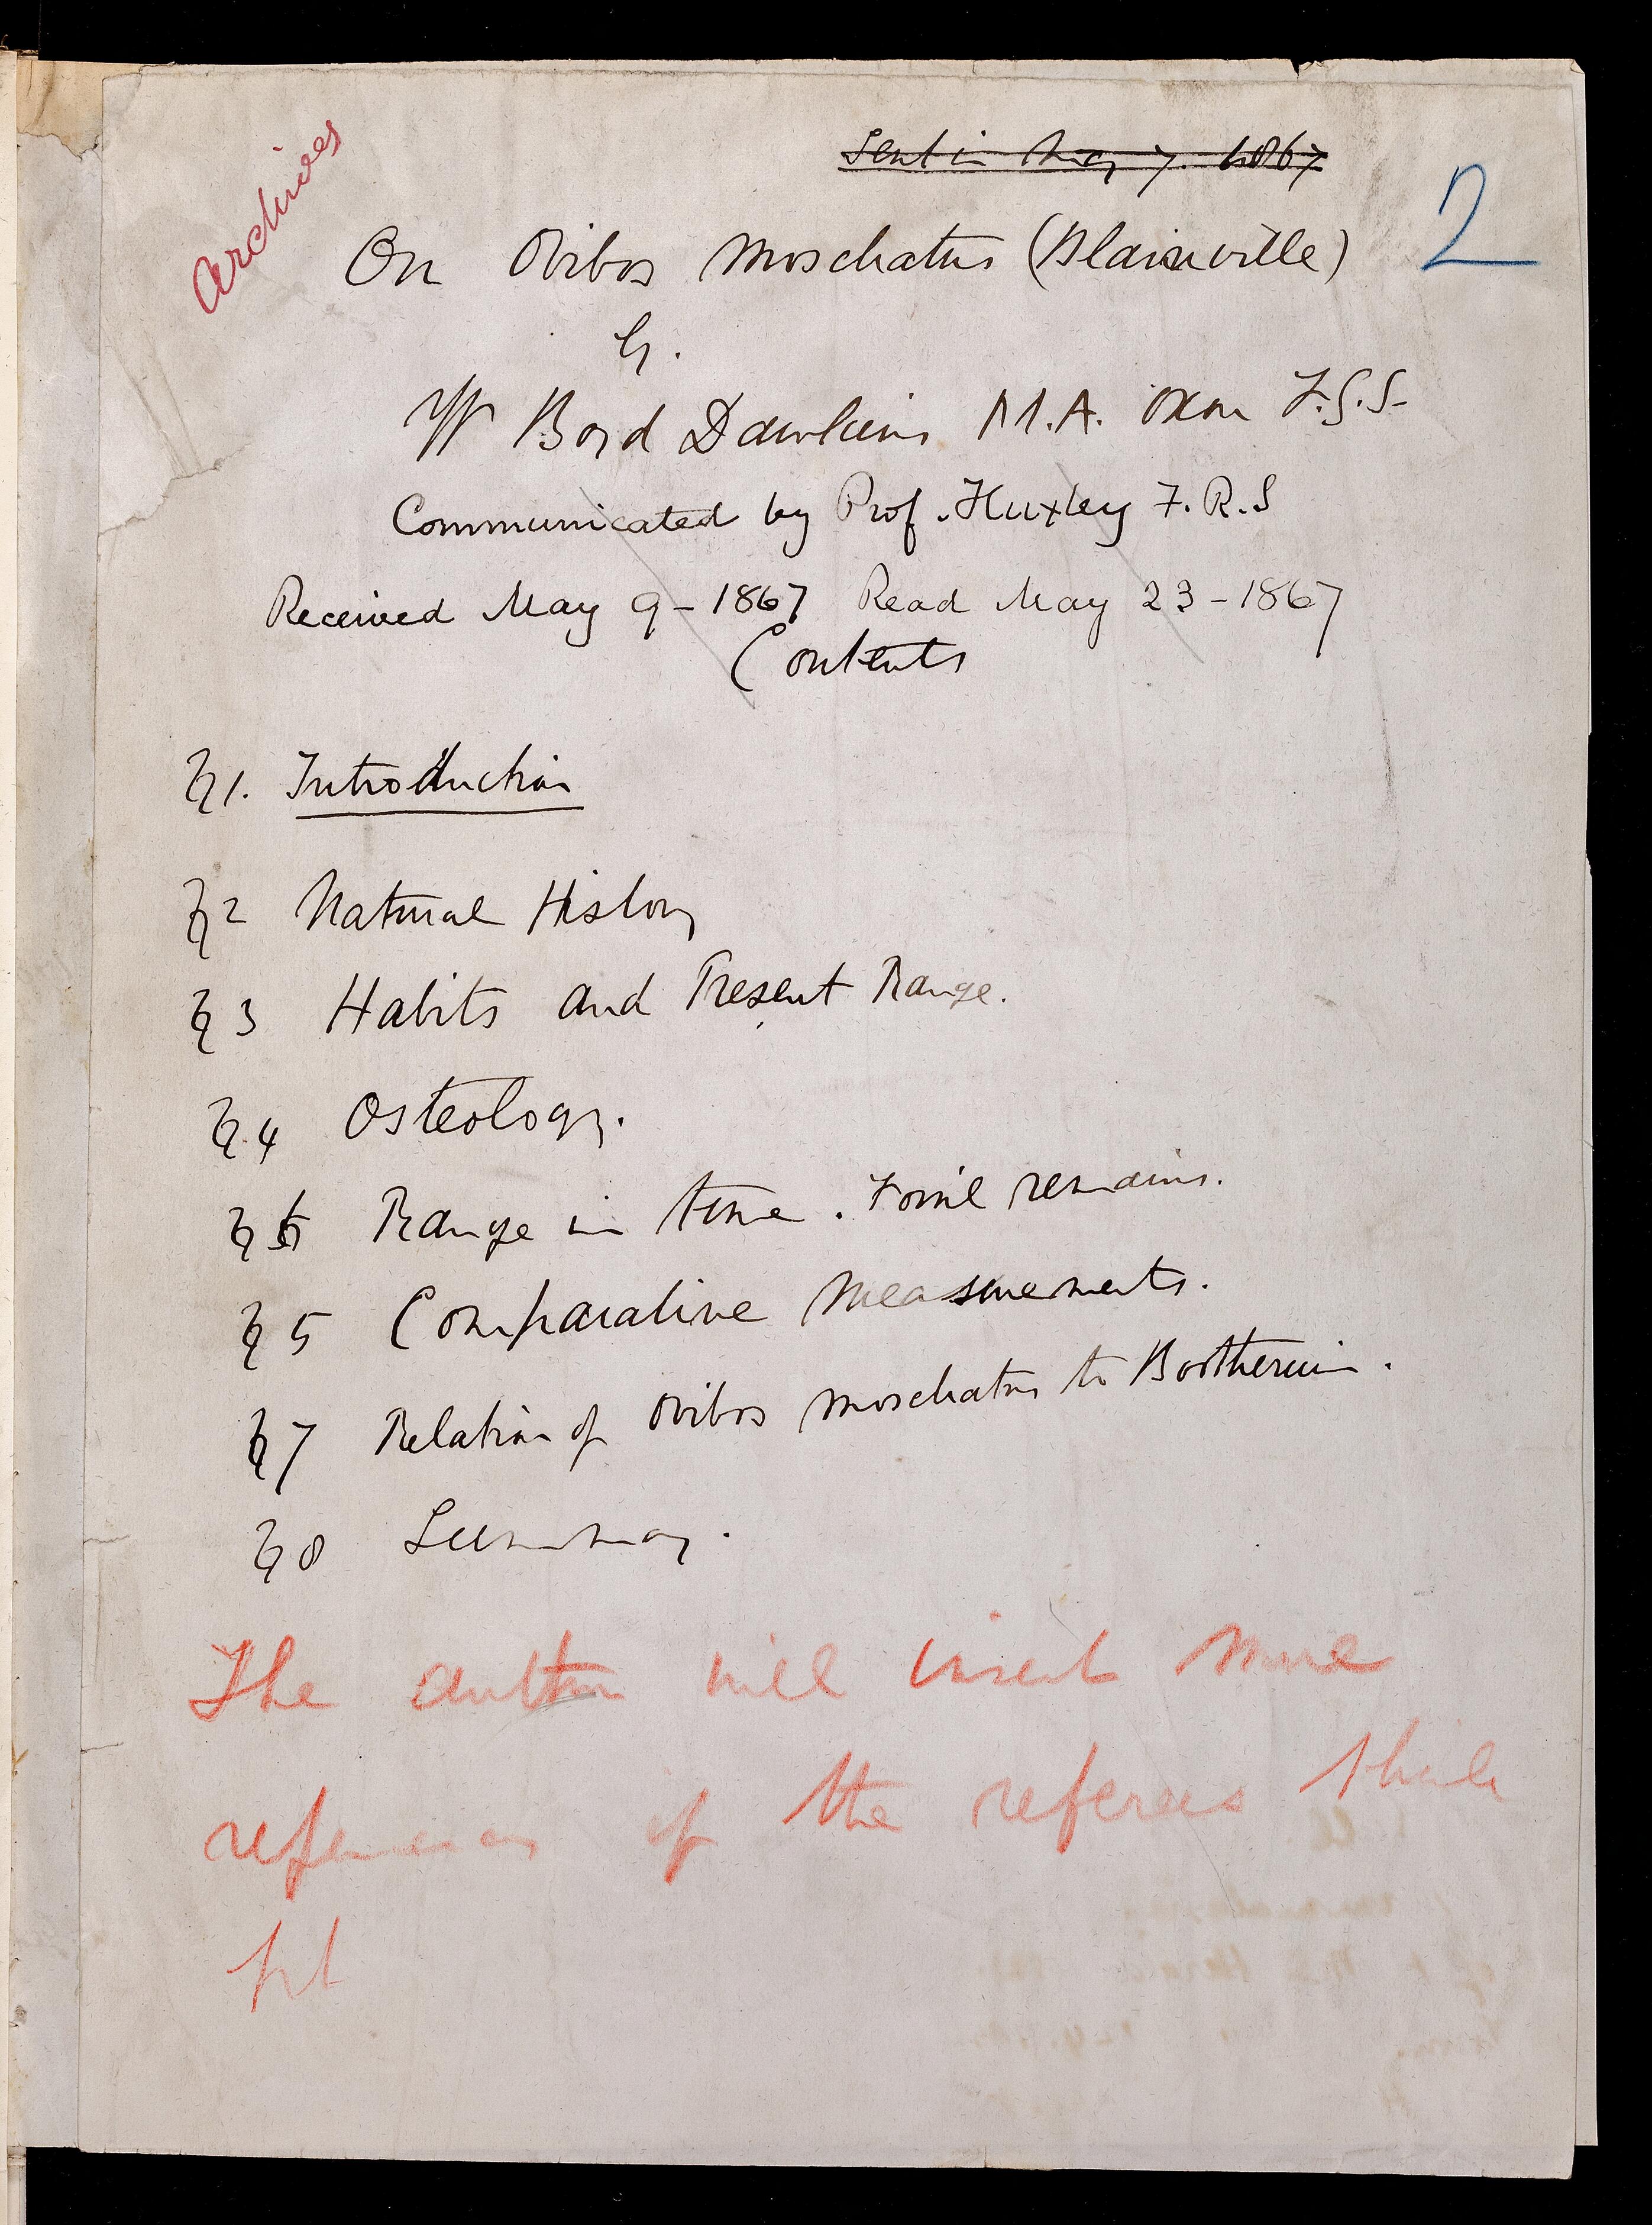 Archives
Sent in May 7. 1867
2
On Ovibos moschatus (Blainville)
by.
W Boyd Dawkins M.A. Oxon F.G.S.
Communicated by Prof. Huxley F.R.S
Received May 9-1867 Read May 23-1867
Contents
§1. Introduction
§2 Natural History
§3 Habits and Present Range.
§4 Osteology.
§6 Range in time. Fossil remains.
§5 Comparative Measurements.
§7 Relation of Ovibos moschatus to Bootherium.
§8 Summary.
The author will insert more
references if the referees think
fit